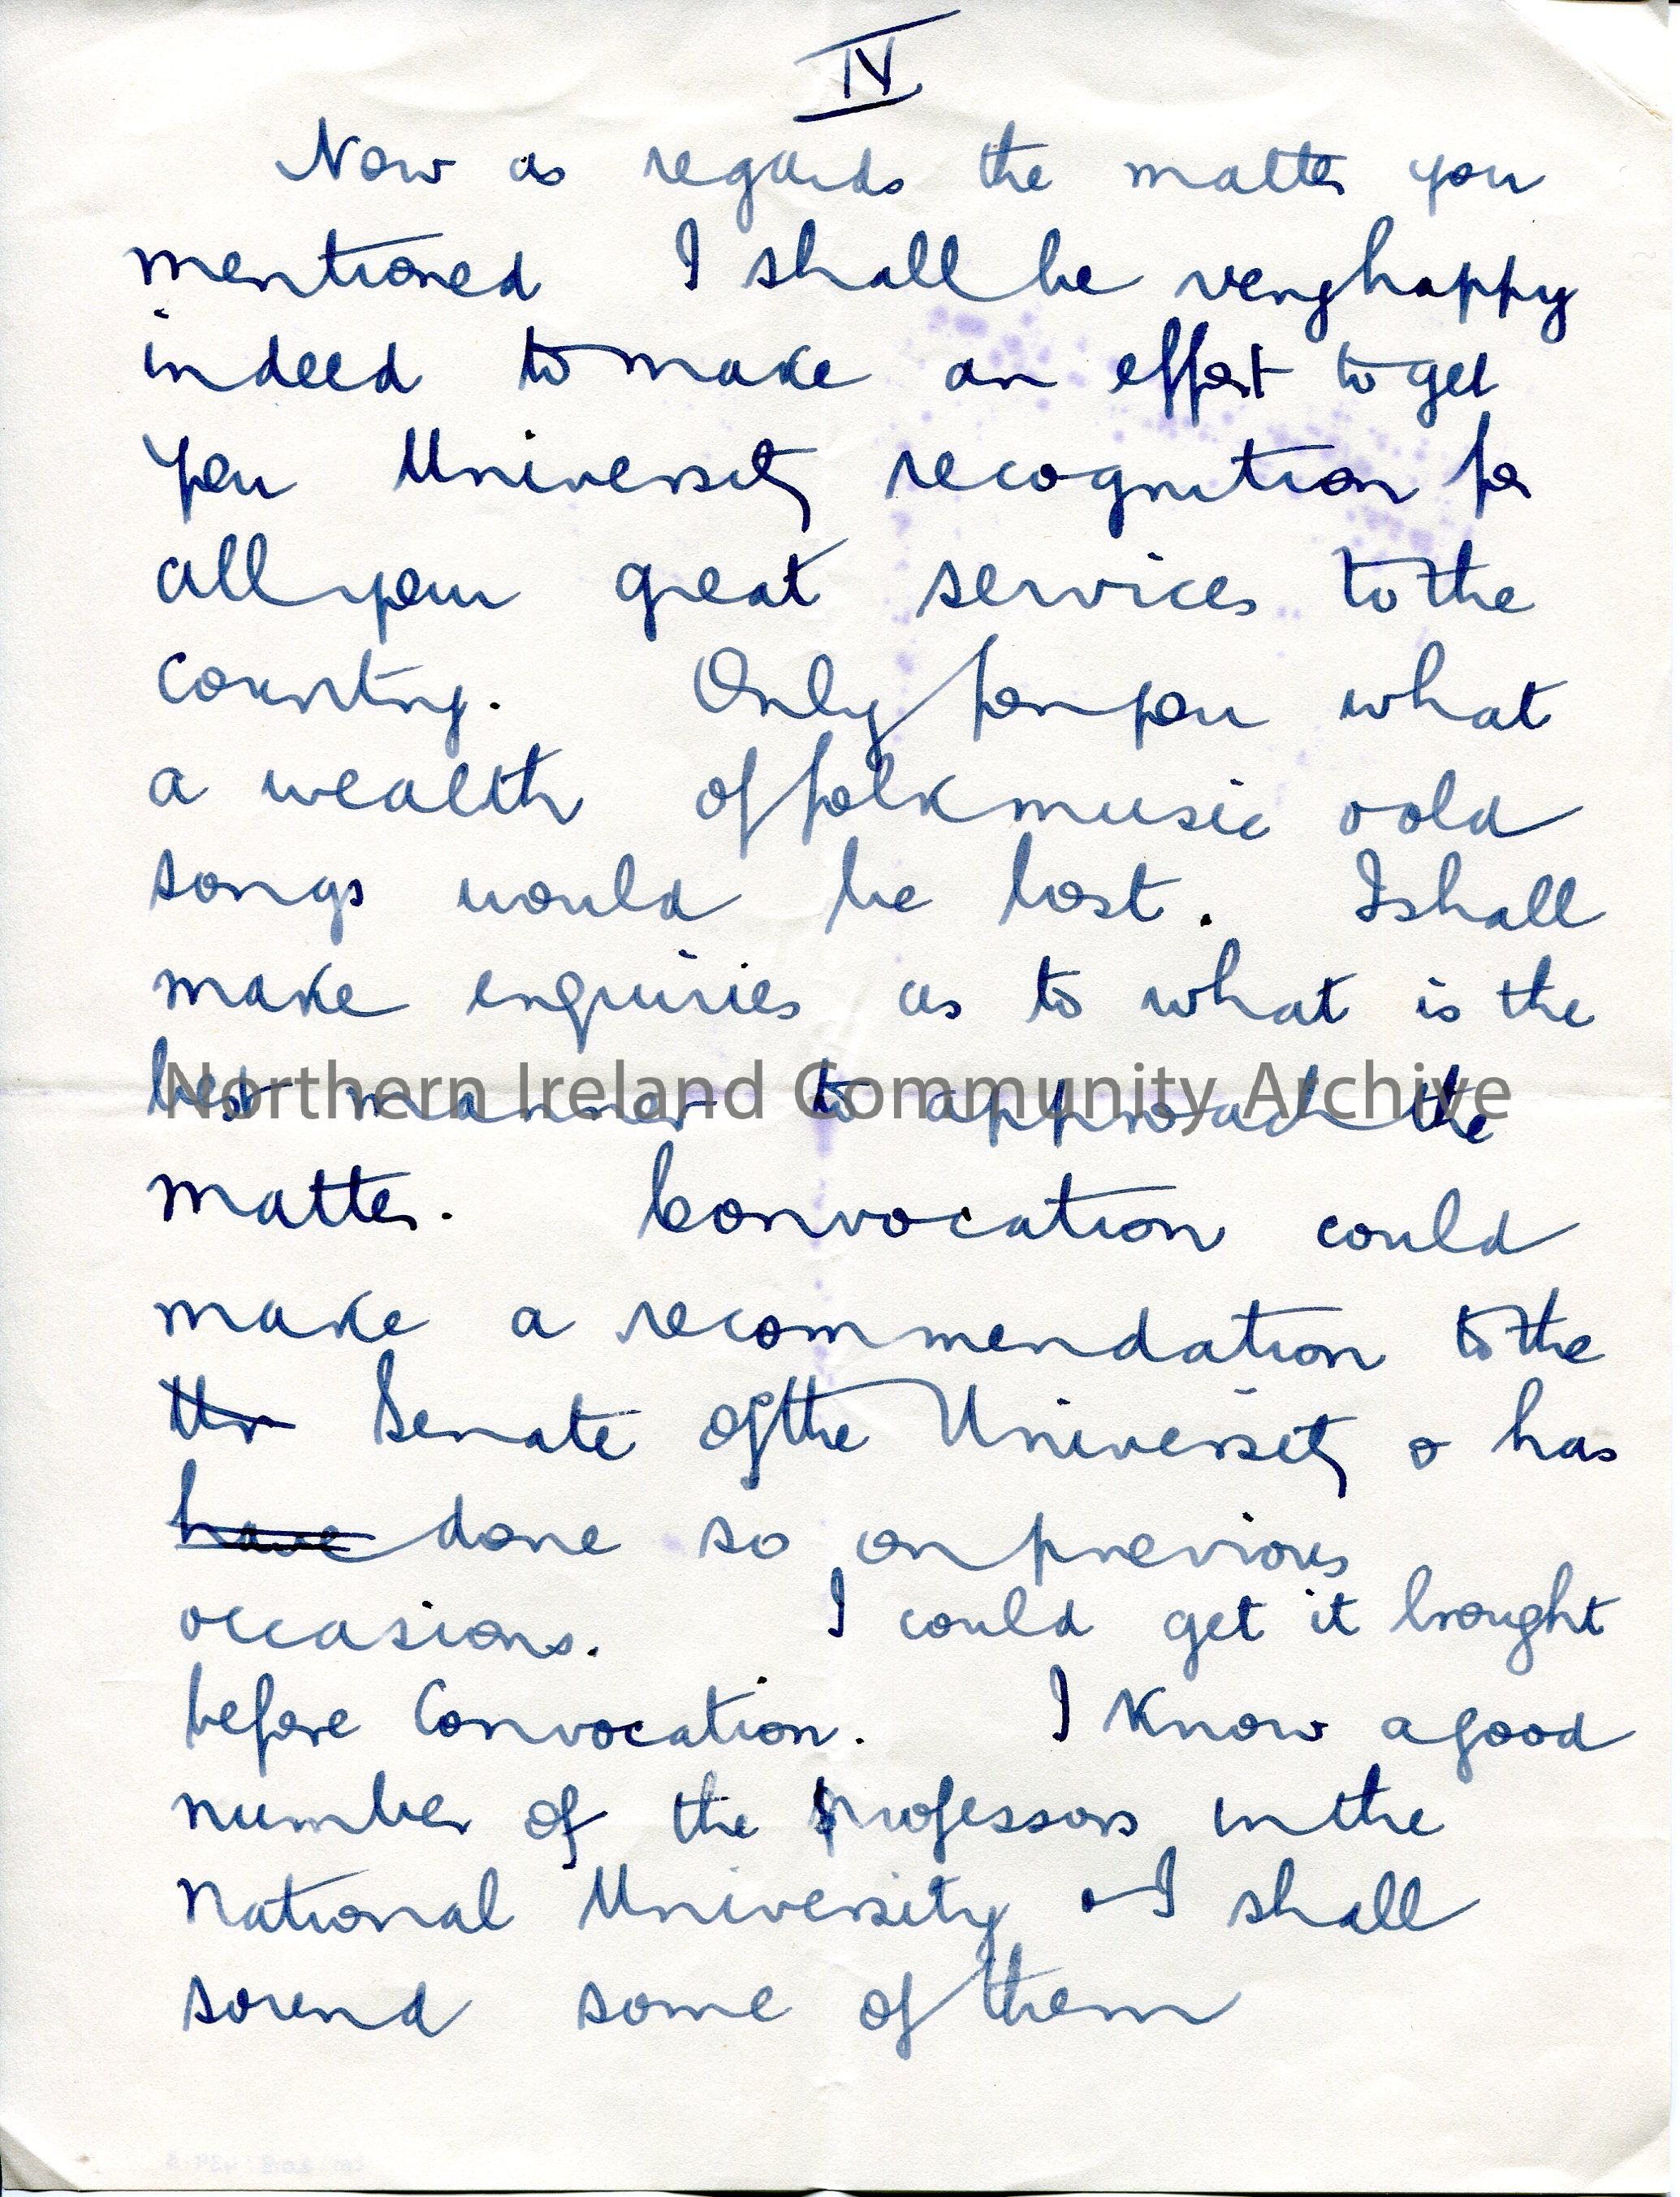 IV
Now as regards the matter you
mentioned I shall be very happy
indeed to make an effort to get
you University recognition for
all your great services to the
country. Only for you what
a wealth of folk music & old
songs would be lost. I shall
make enquiries as to what is the
best manner to approach the
Northern Ireland Community Archive
matter. Convocation could
make a recommendation to the
the Senate of the University & has
have done so on previous
occasions. I could get it brought
before Convocation. I know a good
number of the Professors in the
National University & I shall
sound some of them